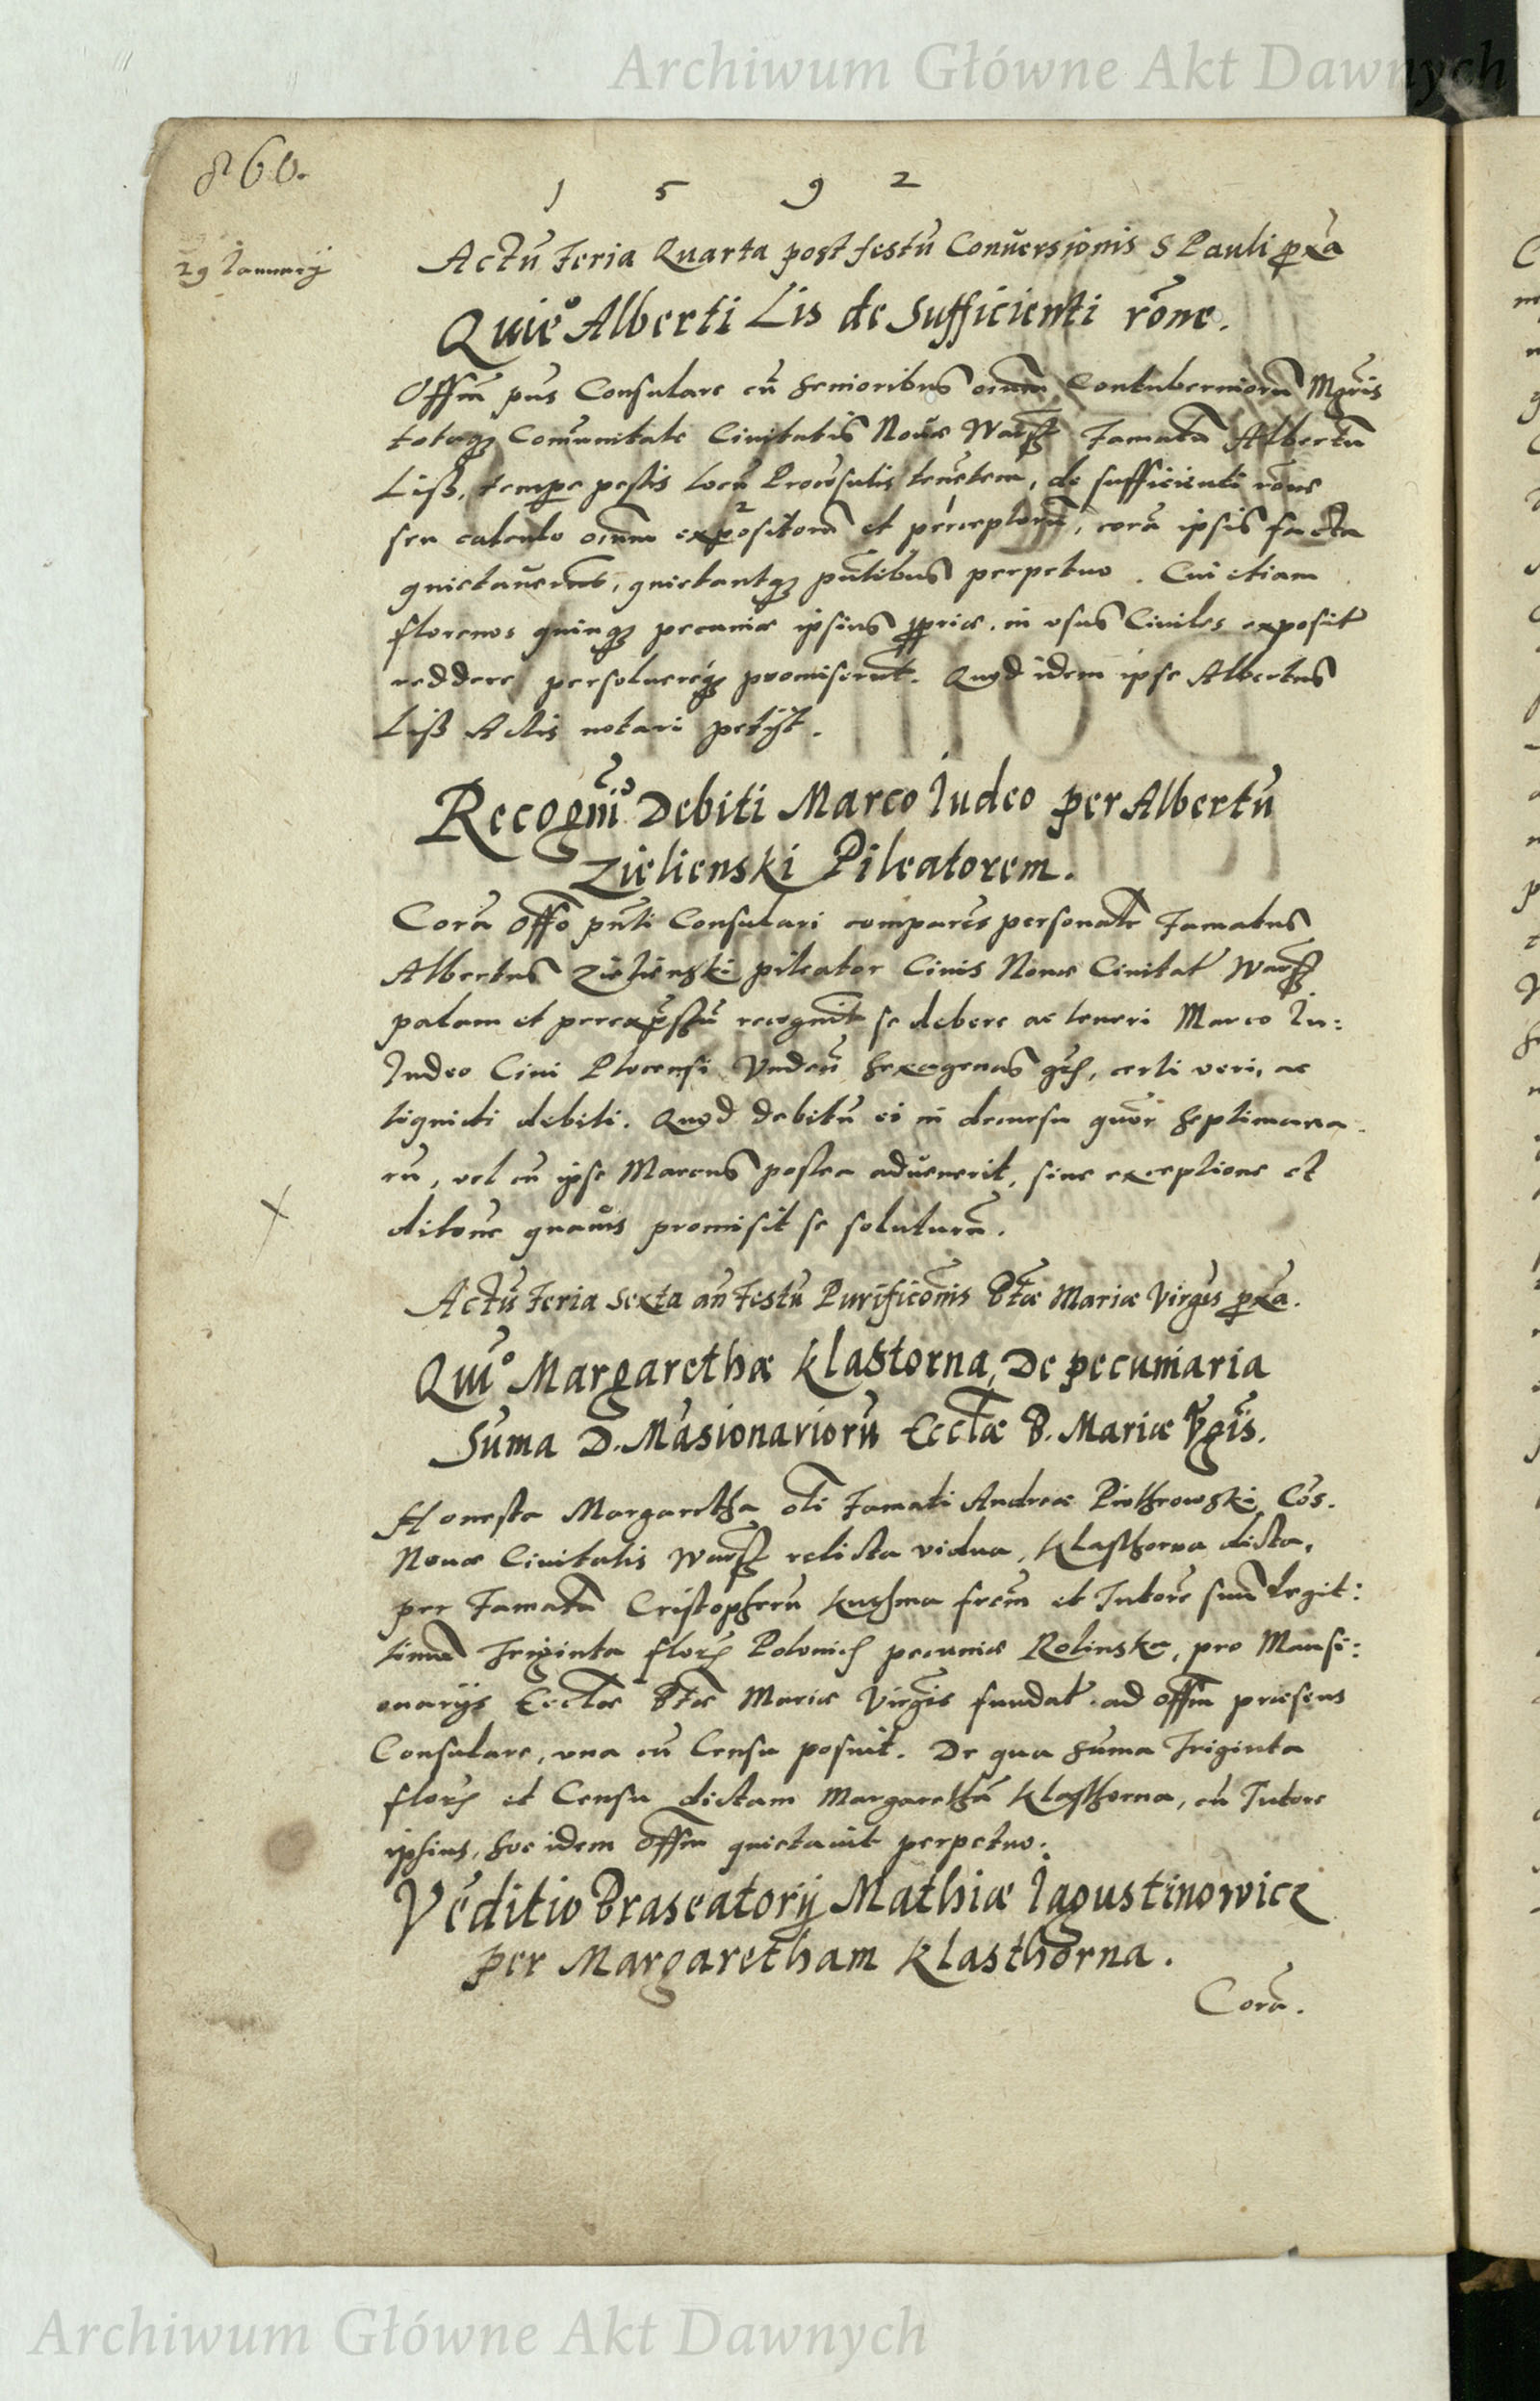 Archiwum Główne Akt Dawnych
860.
1 5 9 2
29 Januarij
Actũ Feria Quarta post festũ Conversionis S Pauli pxã
Quieº Alberti Lis de Sufficienti rõne.
Offm̃ pñs Consulare cũ Senioribus oium̃ Contuberniorũ Mgr̃is
totaqz Comũnitate Civitatis Novæ Warß Famatũ Albertũ
Liß, tempe pestis locũ Procõsulis tenẽtem, de sufficienti rõne
seu calculo oium̃ expositorũ et perceptorũ, corã ipsis facta
quietaverũt, quietantqz pñtibus perpetuo. Cui etiam
florenos quinqz pecuniæ ipsius propriæ, in usus Civiles exposit
reddere persolvereqz promiserũt. Quod idem ipse Albertus
Liß Actis notari petijt.
Recogniº Debiti Marco Iudeo per Albertũ
Zielienski Pileatorem.
Corã Offo pñti Consulari comparẽs personalr Famatus
Albertus Zielienski pileator Civis Novæ Civitat Warß
palam et per expssũ recognovit se debere ac teneri Marco Iu:
Iudeo Civi Plocensi Undecĩ Sexagenas grß, certi veri, ac
liquidi debiti. Quod debitũ ei in decursu quõr Septimana
rũ, vel cũ ipse Marcus postea advenerit, sine exceptione et
dilõne quavis promisit se soluturũ.
Actũ Feria Sexta an̄ Festũ Purificõnis Btæ Mariæ Virgis pxã.
Quiº Margarethæ Klastorna, De pecuniaria
Suma D. Mãsionariorũ Ecclæ B. Mariæ Vgĩs.
Honesta Margaretha oli Famati Andreæ Piothrowski Cõs.
Novæ Civitatis Warß relicta vidua, Klasthorna dicta,
per Famatũ Cristopherũ Kuchma frem̃ et Tutorẽ suũ legit:
timũ Triginta florß Polonicß pecuniæ Rolinska, pro Mansi:
onarijs Ecclæ Btæ Mariæ Virgĩs fundat ad offm̃ præsens
Consulare, una cũ Censu posuit. De qua Suma Triginta
florß et Censu dictam Margarethã Klasthorna, cũ Tutore
ipsius, hoc idem Offm̃ quietavit perpetuo.
Vẽditio Braseatorij Mathiæ Jagustinowicz
per Margaretham Klasthorna.
Corã.
Archiwum Główne Akt Dawnych